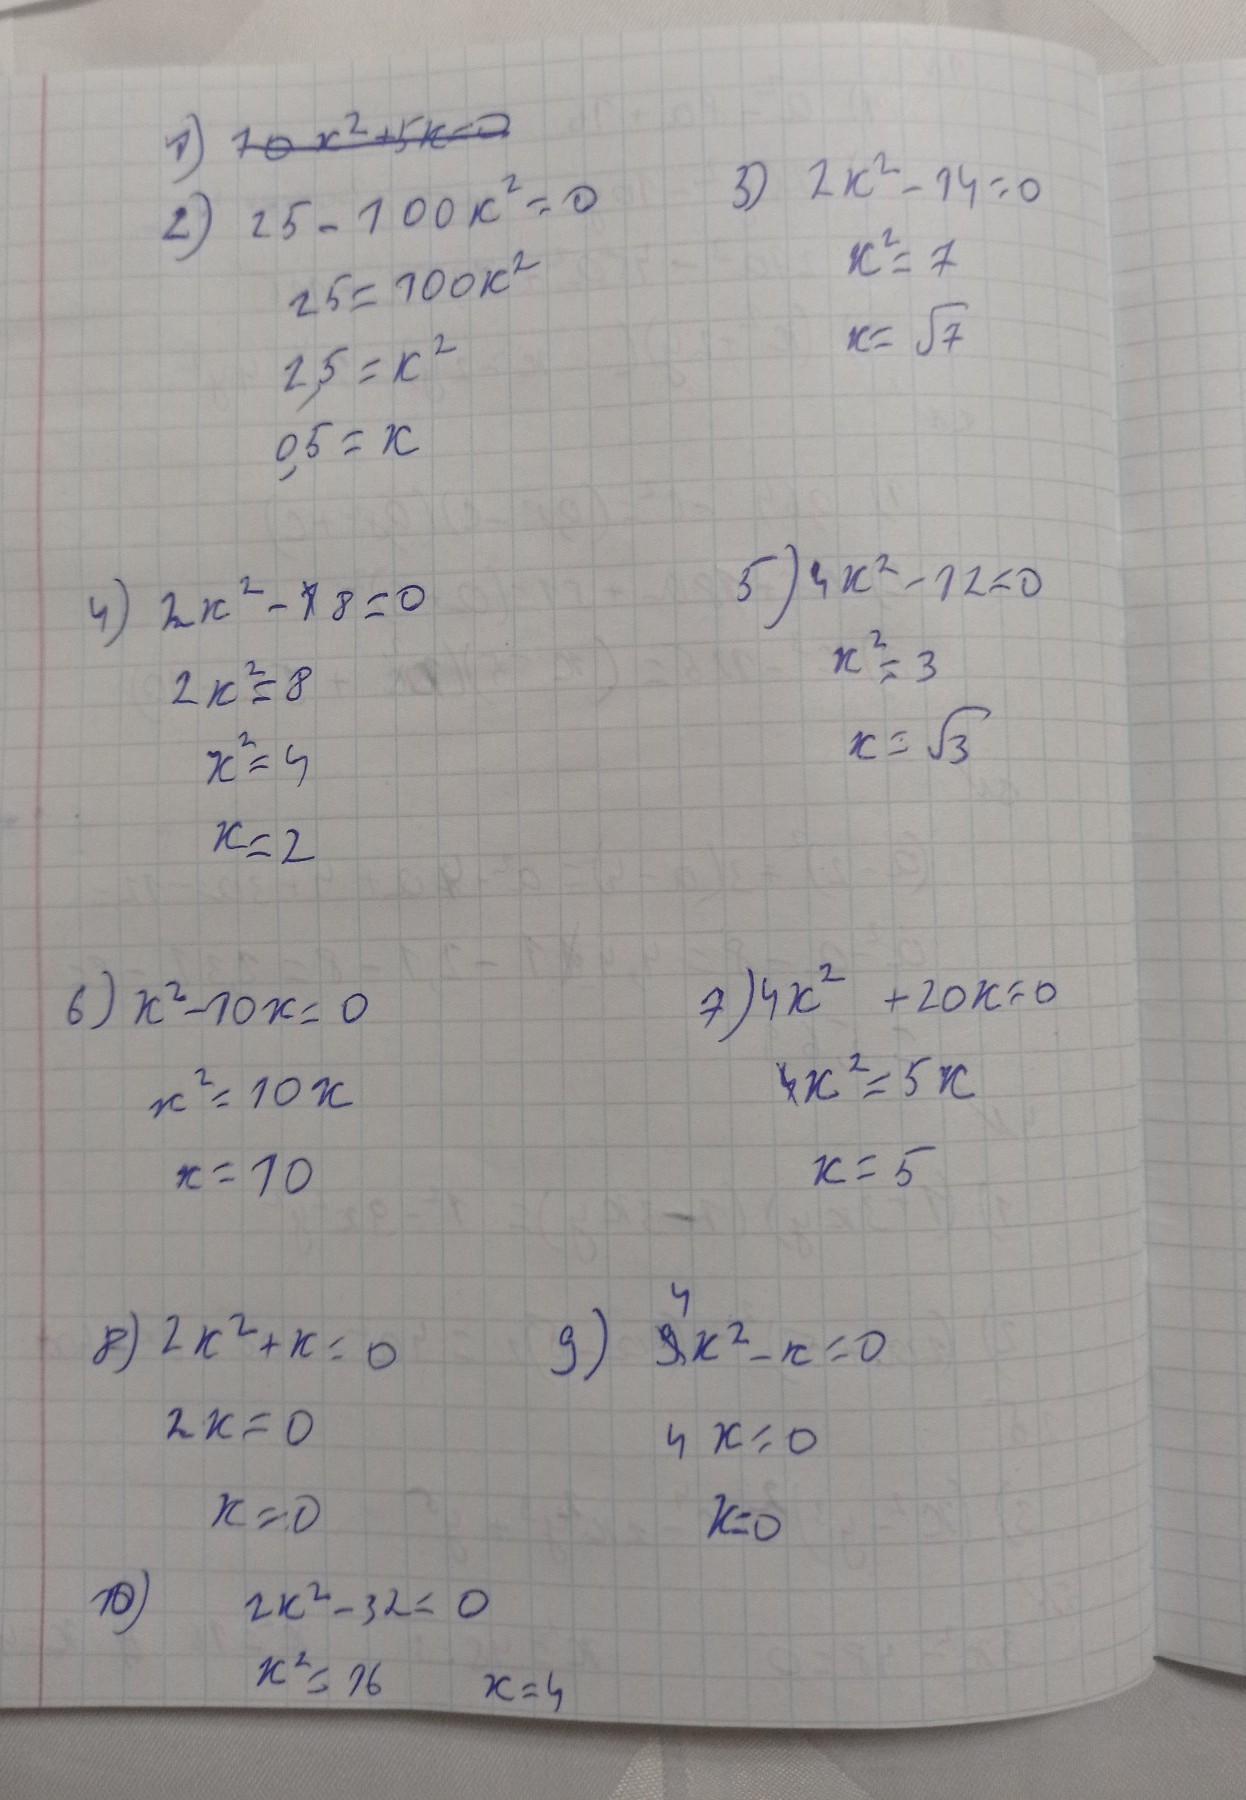 1) 10x²+5x=0
2) 25-100x²=0
25=100x²
2,5=x²
0,5=x
3) 2x²-14=0
x²=7
x=√7
4) 2x²-8=0
2x²=8
x²=4
x=2
5) 4x²-12=0
x²=3
x=√3
6) x²-10x=0
x²=10x
x=10
7) 4x² +20x=0
x²=5x
x=5
8) 2x²+x=0
2x=0
x=0
9) 4x²-x=0
4x=0
x=0
10) 2x²-32=0
x²=16 x=4